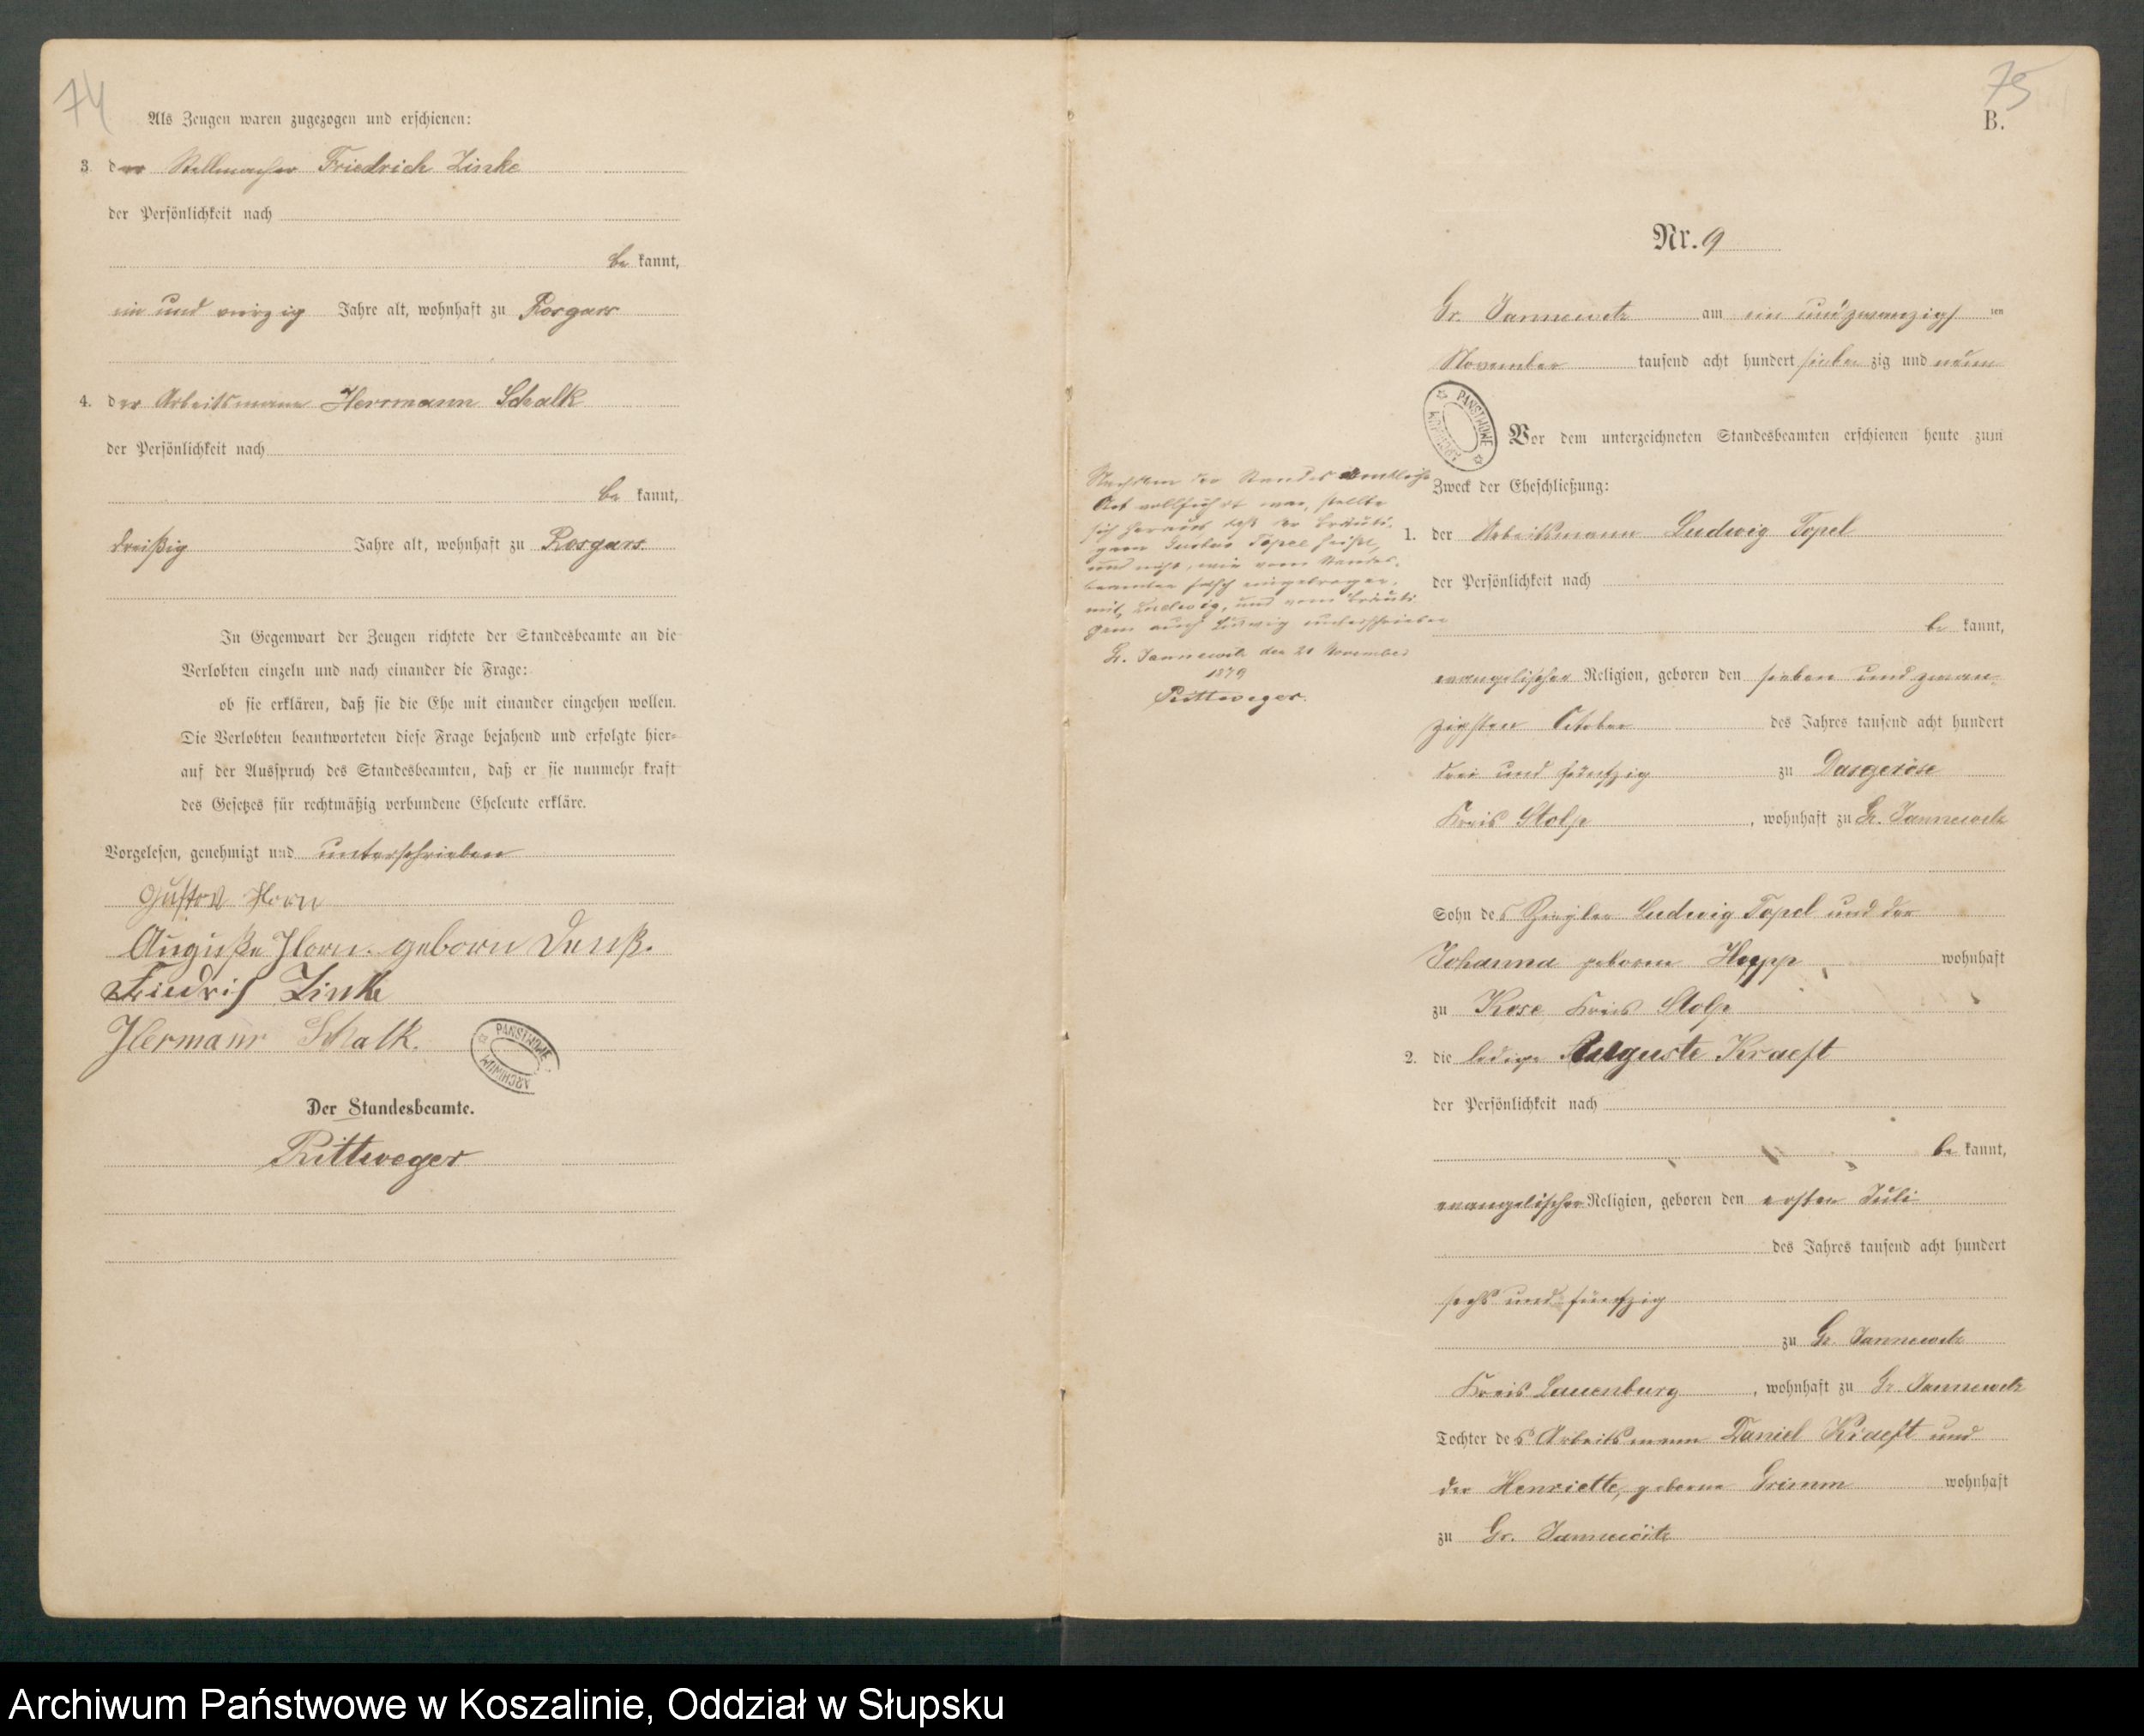 74
Als Zeugen waren zugezogen und erschienen:
3. der Stellmacher Friedrich Zinke
der Persönlichkeit nach
be kannt,
ein und vierzig Jahre alt, wohnhaft zu Rosgars
4. der Arbeitsmann Herrmann Schalk
der Persönlichkeit nach
be kannt,
dreißig Jahre alt, wohnhaft zu Rosgars
In Gegenwart der Zeugen richtete der Standesbeamte an die
Verlobten einzeln und nach einander die Frage:
ob sie erklären, daß sie die Ehe mit einander eingehen wollen.
Die Verlobten beantworteten diese Frage bejahend und erfolgte hier-
auf der Ausspruch des Standesbeamten, daß er sie nunmehr kraft
des Gesetzes für rechtmäßig verbundene Eheleute erkläre.
Vorgelesen, genehmigt und unterschrieben
Gustav Horn
Auguste Horn geborn
Friedrich Zinke
Hermann Schalk.
PAŃSTWOWE
ARCHIWUM
Der Standesbeamte.
Rittweger
75
B.
Nr. 9
Gr. Jannewitz am ein und zwanzigsten
November tausend acht hundert sieben zig und neun
PAŃSTWOWE
ARCHIWUM
Vor dem unterzeichneten Standesbeamten erschienen heute zum
Zweck der Eheschließung:
1. der Arbeitsmann Ludwig Topel
der Persönlichkeit nach
be kannt,
evangelischer Religion, geboren den sieben und zwan-
zigsten October des Jahres tausend acht hundert
drei und fünfzig zu Dargeröse
Kreis Stolp, wohnhaft zu Gr. Jannewitz
Sohn des Ziegler Ludwig Topel und der
Johanna geborne Hopp wohnhaft
zu Kose Kreis Stolp
2. die ledige Auguste Kraeft
der Persönlichkeit nach
be kannt,
evangelischer Religion, geboren den ersten Juli
des Jahres tausend acht hundert
sechs und fünfzig
zu Gr. Jannewitz
Kreis Lauenburg, wohnhaft zu Gr. Jannewitz
Tochter des Arbeitsmann Daniel Kraeft und
der Henriette, geborne Grimm wohnhaft
zu Gr. Jannewitz
Nachdem der Standesamtliche
Act vollführt war, stellte
sich heraus daß der Bräuti-
gam Gustav Topel heißt,
und nicht, wie vom Standes-
beamten falsch eingetragen,
mit Ludwig, und vom Bräuti
gam auch Ludwig unterschrieben
Gr. Jannewitz den 21 November
1879
Rittweger.
Archiwum Państwowe w Koszalinie, Oddział w Słupsku